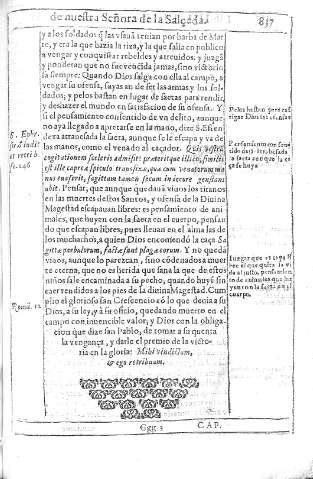 de nuestra Señora de la Salceda. 837
y a los soldados q̃ las vsauã tenian por barba de Marte, y era la que hazia la riza, y la que salia en publico
a vengar y conquistar rebeldes y atreuidos: y juzgã
y ponderan que no fue vencida jamas, sino victorio
sa siempre: Quando Dios salga con ella al campo, a
vengar su ofensa, suyas an de ser las armas y los sol-
dados; y pelos bastan en lugar de saetas para rendir,
y deshazer el mundo en satisfacion de su ofensa. Y
si el pensamiento consentido de vn delito, aunque
no aya llegado a apretarse en la mano, dize S. Efren
dexa atrauesada la saeta, aunque se le escapa y va de
las manos, como el venado al caçador.
cogitationem sceleris admisit: præterijtque illicò, similis
est ille capreæ spiculo transfixæ, quæ cum venatorum ma
nus euaserit, sagittam tamen secum in iecore gestians
abit. Pensar, que aunque quedauã viuos los tiranos
en las muertes destos Santos, y ofensa de la Diuina
Magestad escapauan libres: es pensamiento de ani-
males, que huyen con la saeta en el cuerpo, pensan
do que escapan libres, pues lleuan en el alma las de
los muchachos, a quien Dios encomendó la caça Sa
gittæ paruulorum, factæ sunt plagæ eorum. Y no queda
viuos, aunque lo parezcan, sino cõdenados a muer
te eterna, que no es herida que sana la que de estos
niños sale encaminada a su pecho, quando huyẽ sin
caer rendidos a los pies de la diuina Magestad. Cum
plio el glorioso san Crescencio cõ lo que deuia a su
Dios, a su ley, y a su oficio, quedando muerto en el
campo con inuencible valor; y Dios con la obliga-
cion que dize san Pablo, de tomar a su quenta
la vengança, y darle el premio de la victo-
ria en la gloria: Mihi vindictam,
& ego retribuam.
S. Ephr.
Romã. 12
Ggg 3
CAP.